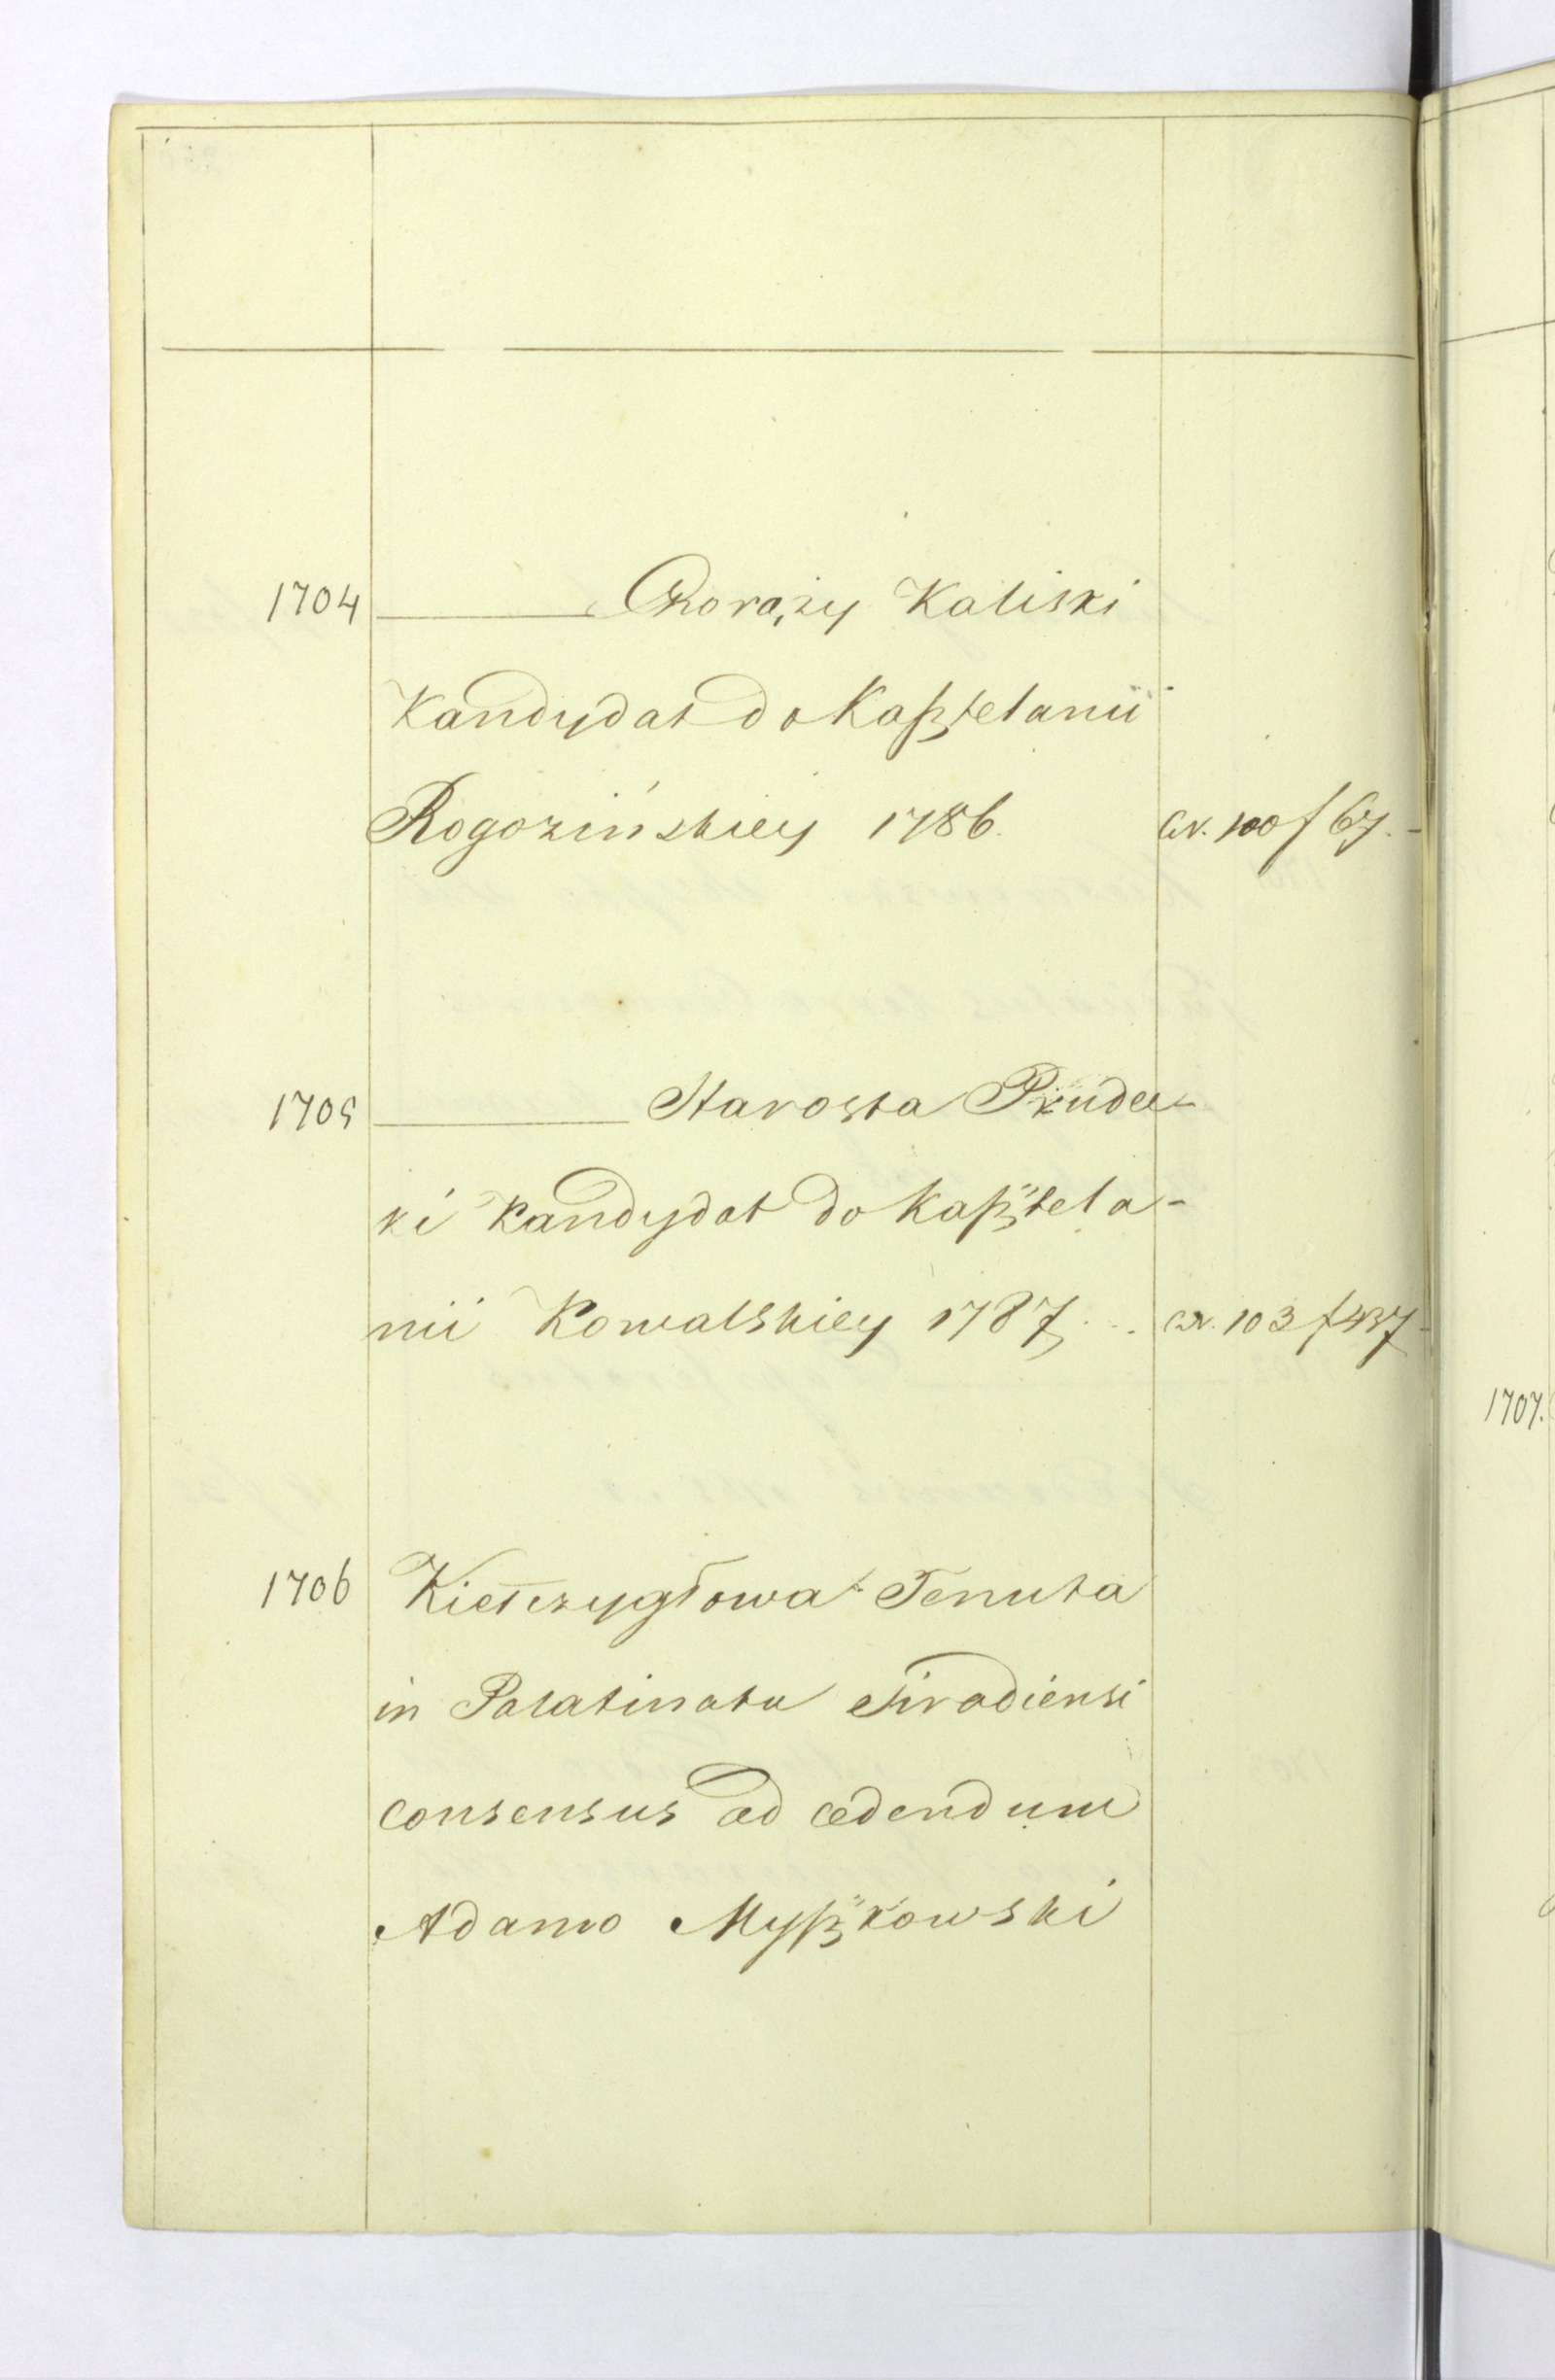 1704 ——— Chorąży Kaliski
Kandydat do Kasztelanii
Rogozińskiey 1786. CN. 100 f 67. -
1705 ——— Starosta
ki Kandydat do Kasztela-
nii Kowalskiey 1787 . . CN. 103 f 437 -
1706 Kiełczygłowa Tenuta
in Palatinatu Siradiensi
consensus ad cedendum
Adamo Myszkowski
1707.